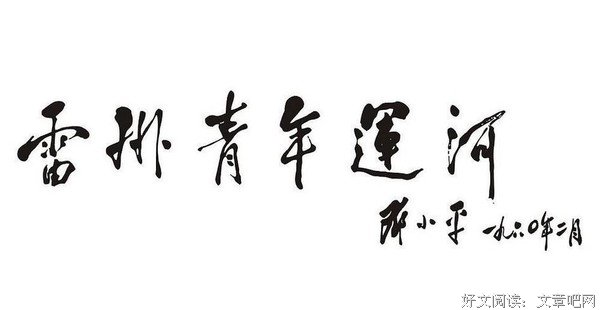 雷州青年運河
邓小平 一九六〇年二月
好文阅读：文章吧网